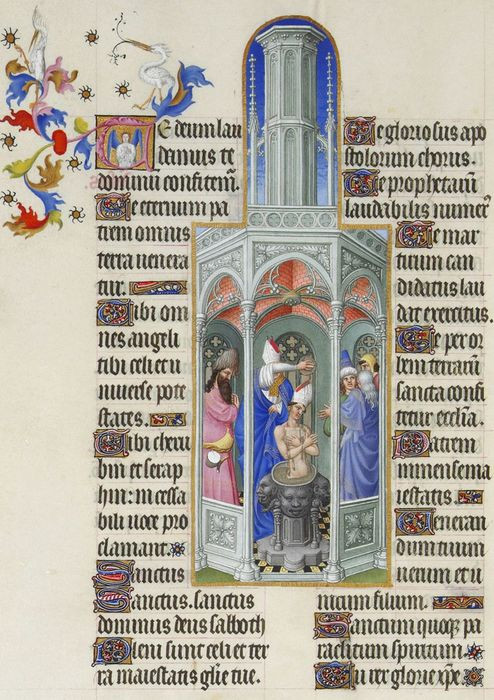 Te deum lau
damus te
dominū confitem̄.
Te eternum pa
trem omnis
terra uenera
tur.
Tibi om
nes angeli
tibi celi et u
niuerse pote
states.
Tibi cheru
bin et serap
hin: in cessa
bili uoce pro
clamant.
Sanctus
Sanctus. sanctus
dominus deus sabaoth
Pleni sunt celi et ter
ra maiestatis glīe tue.
Te gloriosus apo
stolorum chorus.
Te prophetarū
laudabilis numer⁹
Te mar
tirum can
didatus lau
dat exercitus.
Te per or
bem terrarū
sancta confi
tetur ecclīa.
Patrem
inmense ma
iestatis.
Veneran
dum tuum
uerum et u
nicum filium.
Sanctum quoqꝫ pa
raclitum spiritum.
Tu rex glorie xp̄e.